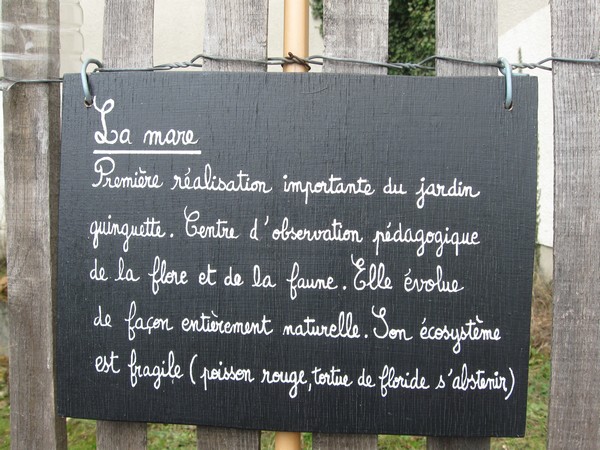 La mare
Première réalisation importante du jardin
guinguette. Centre d'observation pédagogique
de la flore et de la faune. Elle évolue
de façon entièrement naturelle. Son écosystème
est fragile (poisson rouge, tortue de floride s'abstenir)